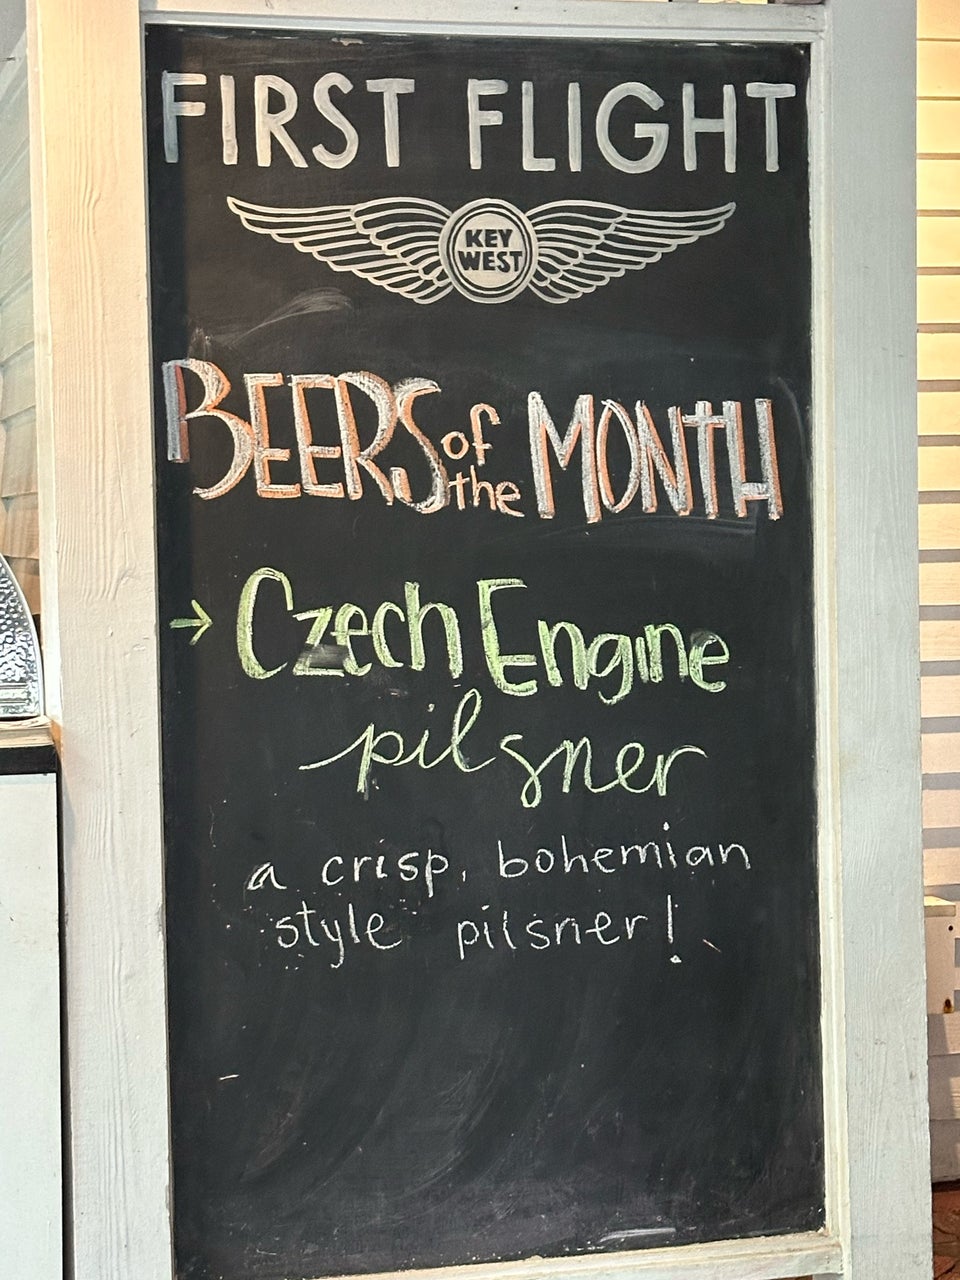 FIRST FLIGHT
KEY
WEST
BEERS of the MONTH
→ Czech Engine
pilsner
a crisp, bohemian
style pilsner!